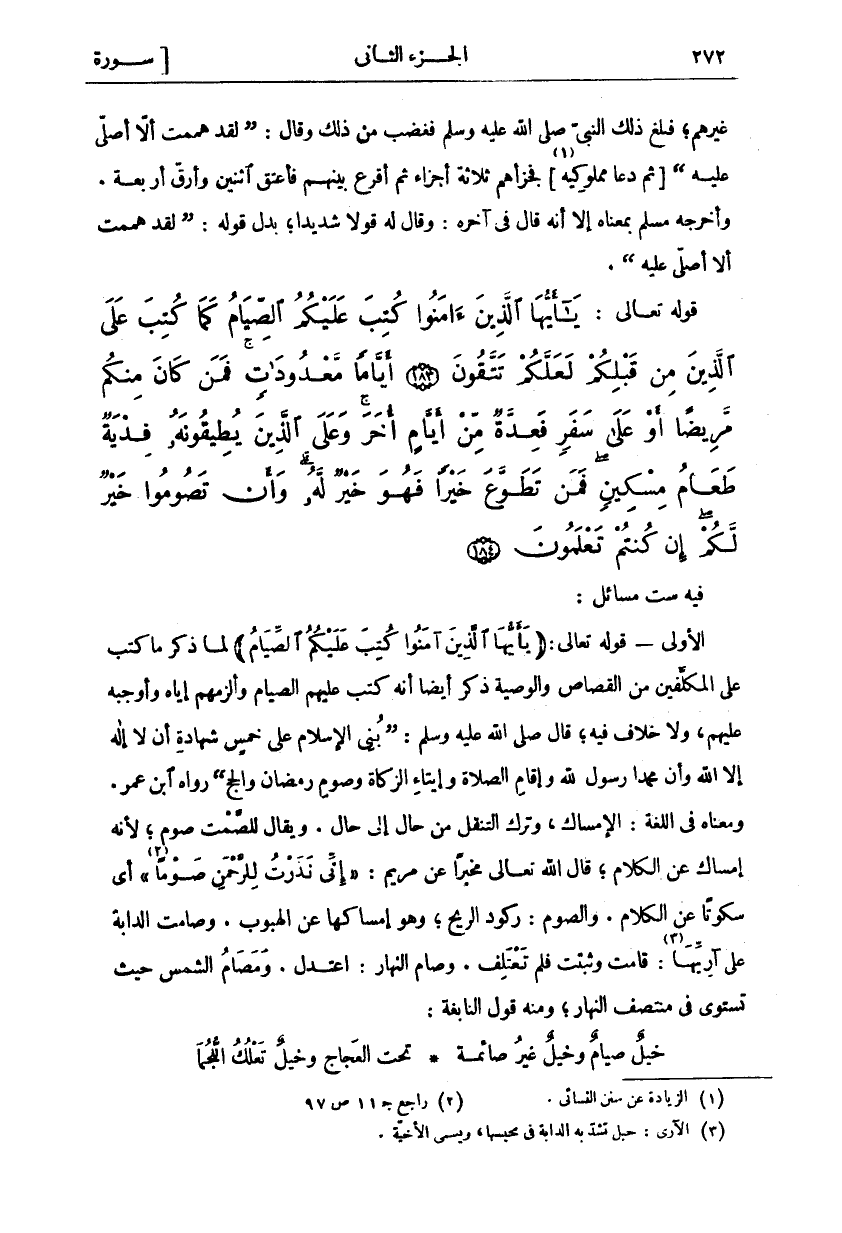 ٢٧٢ الجـزء الثانى [ ســورة
غيرهم؛ فبلغ ذلك النبىّ صلى الله عليه وسلم فغضب من ذلك وقال : ” لقد هممت ألّا أصلّى
عليـه “ [ثم دعا مملوكيه](١) فجزأهم ثلاثة أجزاء ثم أقرع بينهـم فأعتق آثنين وأرقّ أربعـة .
وأخرجه مسلم بمعناه إلا أنه قال فى آخره : وقال له قولا شديدا؛ بدل قوله : ” لقد هممت
ألا أصلّى عليه “ .
قوله تعـالى : يَـٰٓأَيُّهَا ٱلَّذِينَ ءَامَنُوا كُتِبَ عَلَيْكُمُ ٱلصِّيَامُ كَمَا كُتِبَ عَلَى
ٱلَّذِينَ مِن قَبْلِكُمْ لَعَلَّكُمْ تَتَّقُونَ ﴿١٨٣﴾ أَيَّامًا مَّعْـدُودَاتٍ ۚ فَمَن كَانَ مِنكُم
مَّرِيضًا أَوْ عَلَىٰ سَفَرٍ فَعِـدَّةٌ مِّنْ أَيَّامٍ أُخَرَ ۚ وَعَلَى ٱلَّذِينَ يُطِيقُونَهُۥ فِـدْيَةٌ
طَعَـامُ مِسْكِينٍ ۖ فَمَن تَطَـوَّعَ خَيْرًا فَهُـوَ خَيْرٌ لَّهُۥ ۚ وَأَن تَصُومُوا خَيْرٌ
لَّـكُمْ ۖ إِن كُنتُمْ تَعْلَمُونَ ﴿١٨٤﴾
فيه ست مسائل :
الأولى — قوله تعالى: ﴿يَأَيُّهَا ٱلَّذِينَ آمَنُوا كُتِبَ عَلَيْكُمُ ٱلصِّيَامُ﴾ لمـا ذكر ما كتب
على المكلَّفين من القصاص والوصية ذكر أيضا أنه كتب عليهم الصيام وألزمهم إياه وأوجبه
عليهم، ولا خلاف فيه؛ قال صلى الله عليه وسلم : ” بُنِى الإسلام على خمسٍ شهادةِ أن لا إلٰه
إلا الله وأن محمدا رسول لله وإقامِ الصلاة وإيتاءِ الزكاة وصومِ رمضان والحج“ رواه آبن عمر.
ومعناه فى اللغة : الإمساك، وترك التنقل من حال إلى حال . ويقال للصَّمْت صوم؛ لأنه
إمساك عن الكلام؛ قال الله تعـالى مخبرًا عن مريم : «إِنِّى نَذَرْتُ لِلرَّحْمَنِ صَـوْمًا»(٢) أى
سكوتًا عن الكلام . والصوم : ركود الريح؛ وهو إمساكها عن الهبوب . وصامت الدابة
على آرِيِّهـا(٣) : قامت وثبتت فلم تَعْتَلِف . وصام النهار : اعتـدل . وَمَصَامُ الشمس حيث
تستوى فى منتصف النهار؛ ومنه قول النابغة :
خيلٌ صيامٌ وخيلٌ غيرُ صائمـة * تحت العَجاج وخيلٌ تَعْلُكُ اللُّجُمَا
(١) الزيادة عن سنن النسائى . (٢) راجع جـ ١١ ص ٩٧
(٣) الآرى : حبل تشدّ به الدابة فى محبسها، ويسمى الأخيّة .